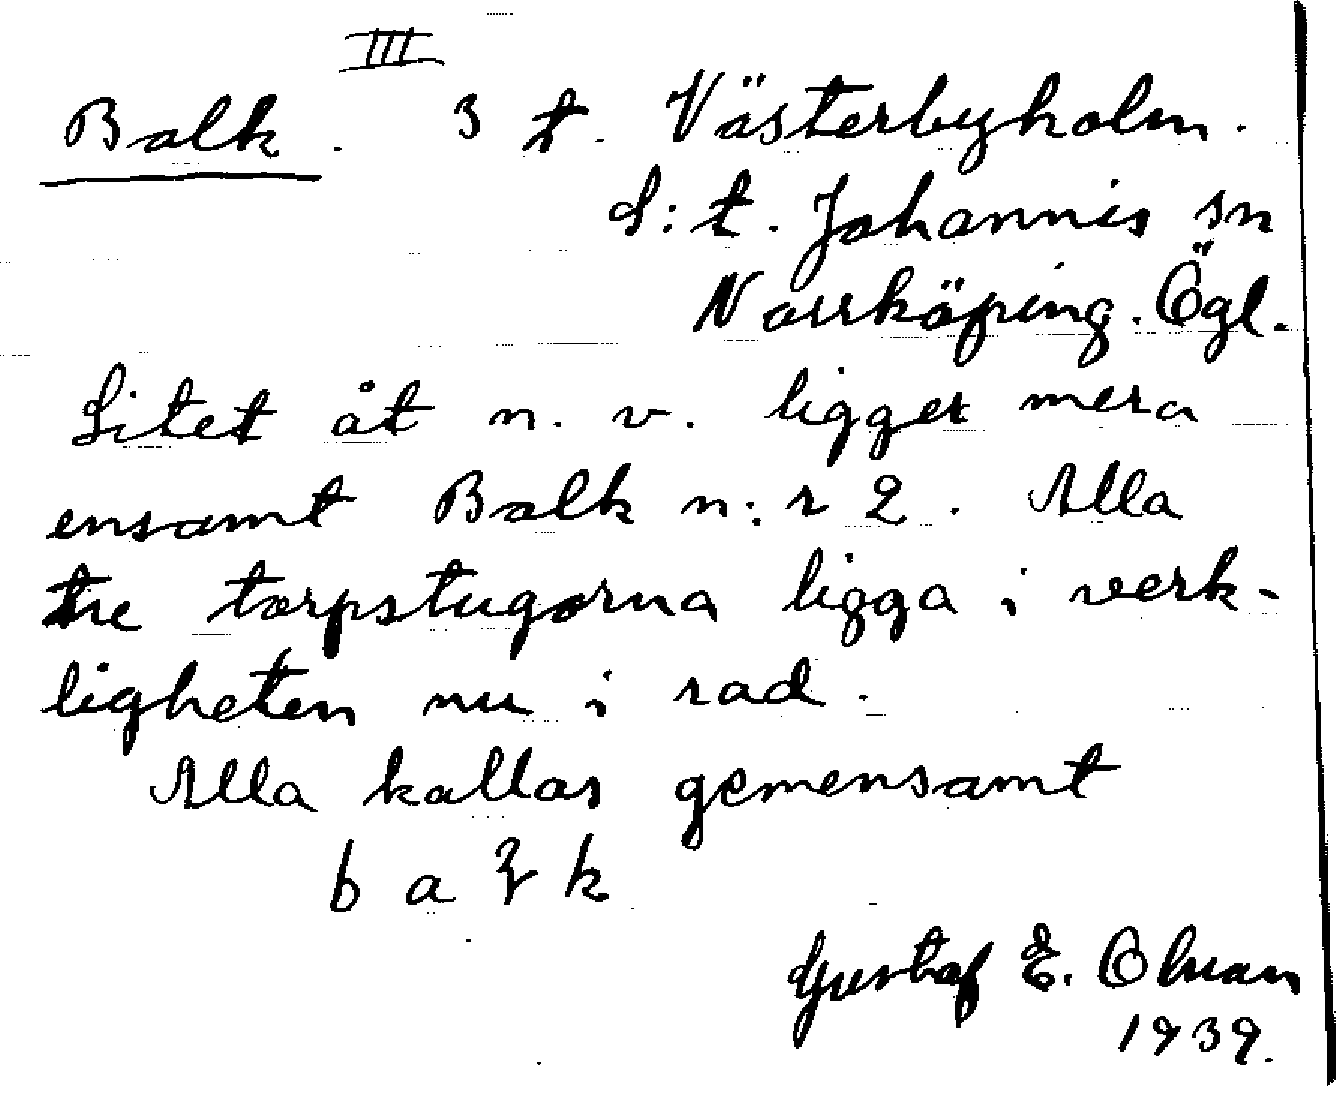 III
Balk. 3 t. Västerbyholm.
S:t. Johannis sn
Norrköping. Ögl.
Litet åt n. v. ligger mera
ensamt Balk n:r 2. Alla
tre torpstugorna ligga i verk-
ligheten nu i rad.
Alla kallas gemensamt
Gustaf E.
1939.